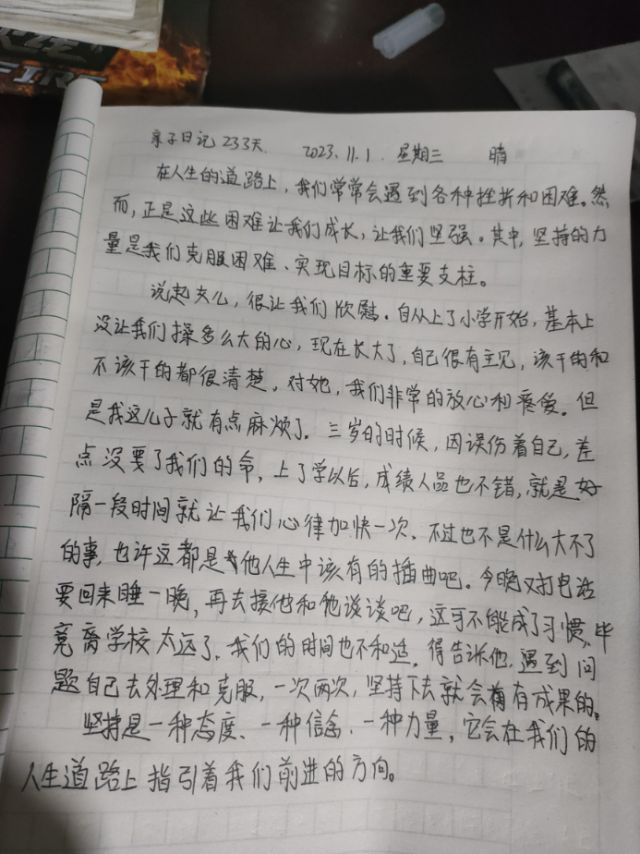 FIRE
亲子日记 233天. 2023.11.1. 星期三 晴
在人生的道路上，我们常常会遇到各种挫折和困难。然
而，正是这些困难让我们成长，让我们坚强。其中，坚持的力
量是我们克服困难、实现目标的重要支柱。
说起女儿，很让我们欣慰。自从上了小学开始，基本上
没让我们操多么大的心，现在长大了，自己很有主见，该干的和
不该干的都很清楚，对她，我们非常的放心和疼爱。但
是我这儿子就有点麻烦了。三岁的时候，因误伤着自己，差
点没要了我们的命，上了学以后，成绩人品也不错，就是好
隔一段时间就让我们心律加快一次。不过也不是什么大不了
的事，也许这都是他人生中该有的插曲吧。今晚又打电话
要回来睡一晚，再去接他和他谈谈吧，这可不能成了习惯，毕
竟离学校太远了，我们的时间也不和适。得告诉他，遇到问
题自己去处理和克服，一次两次，坚持下去就会有成果的。
坚持是一种态度、一种信念、一种力量，它会在我们的
人生道路上指引着我们前进的方向。